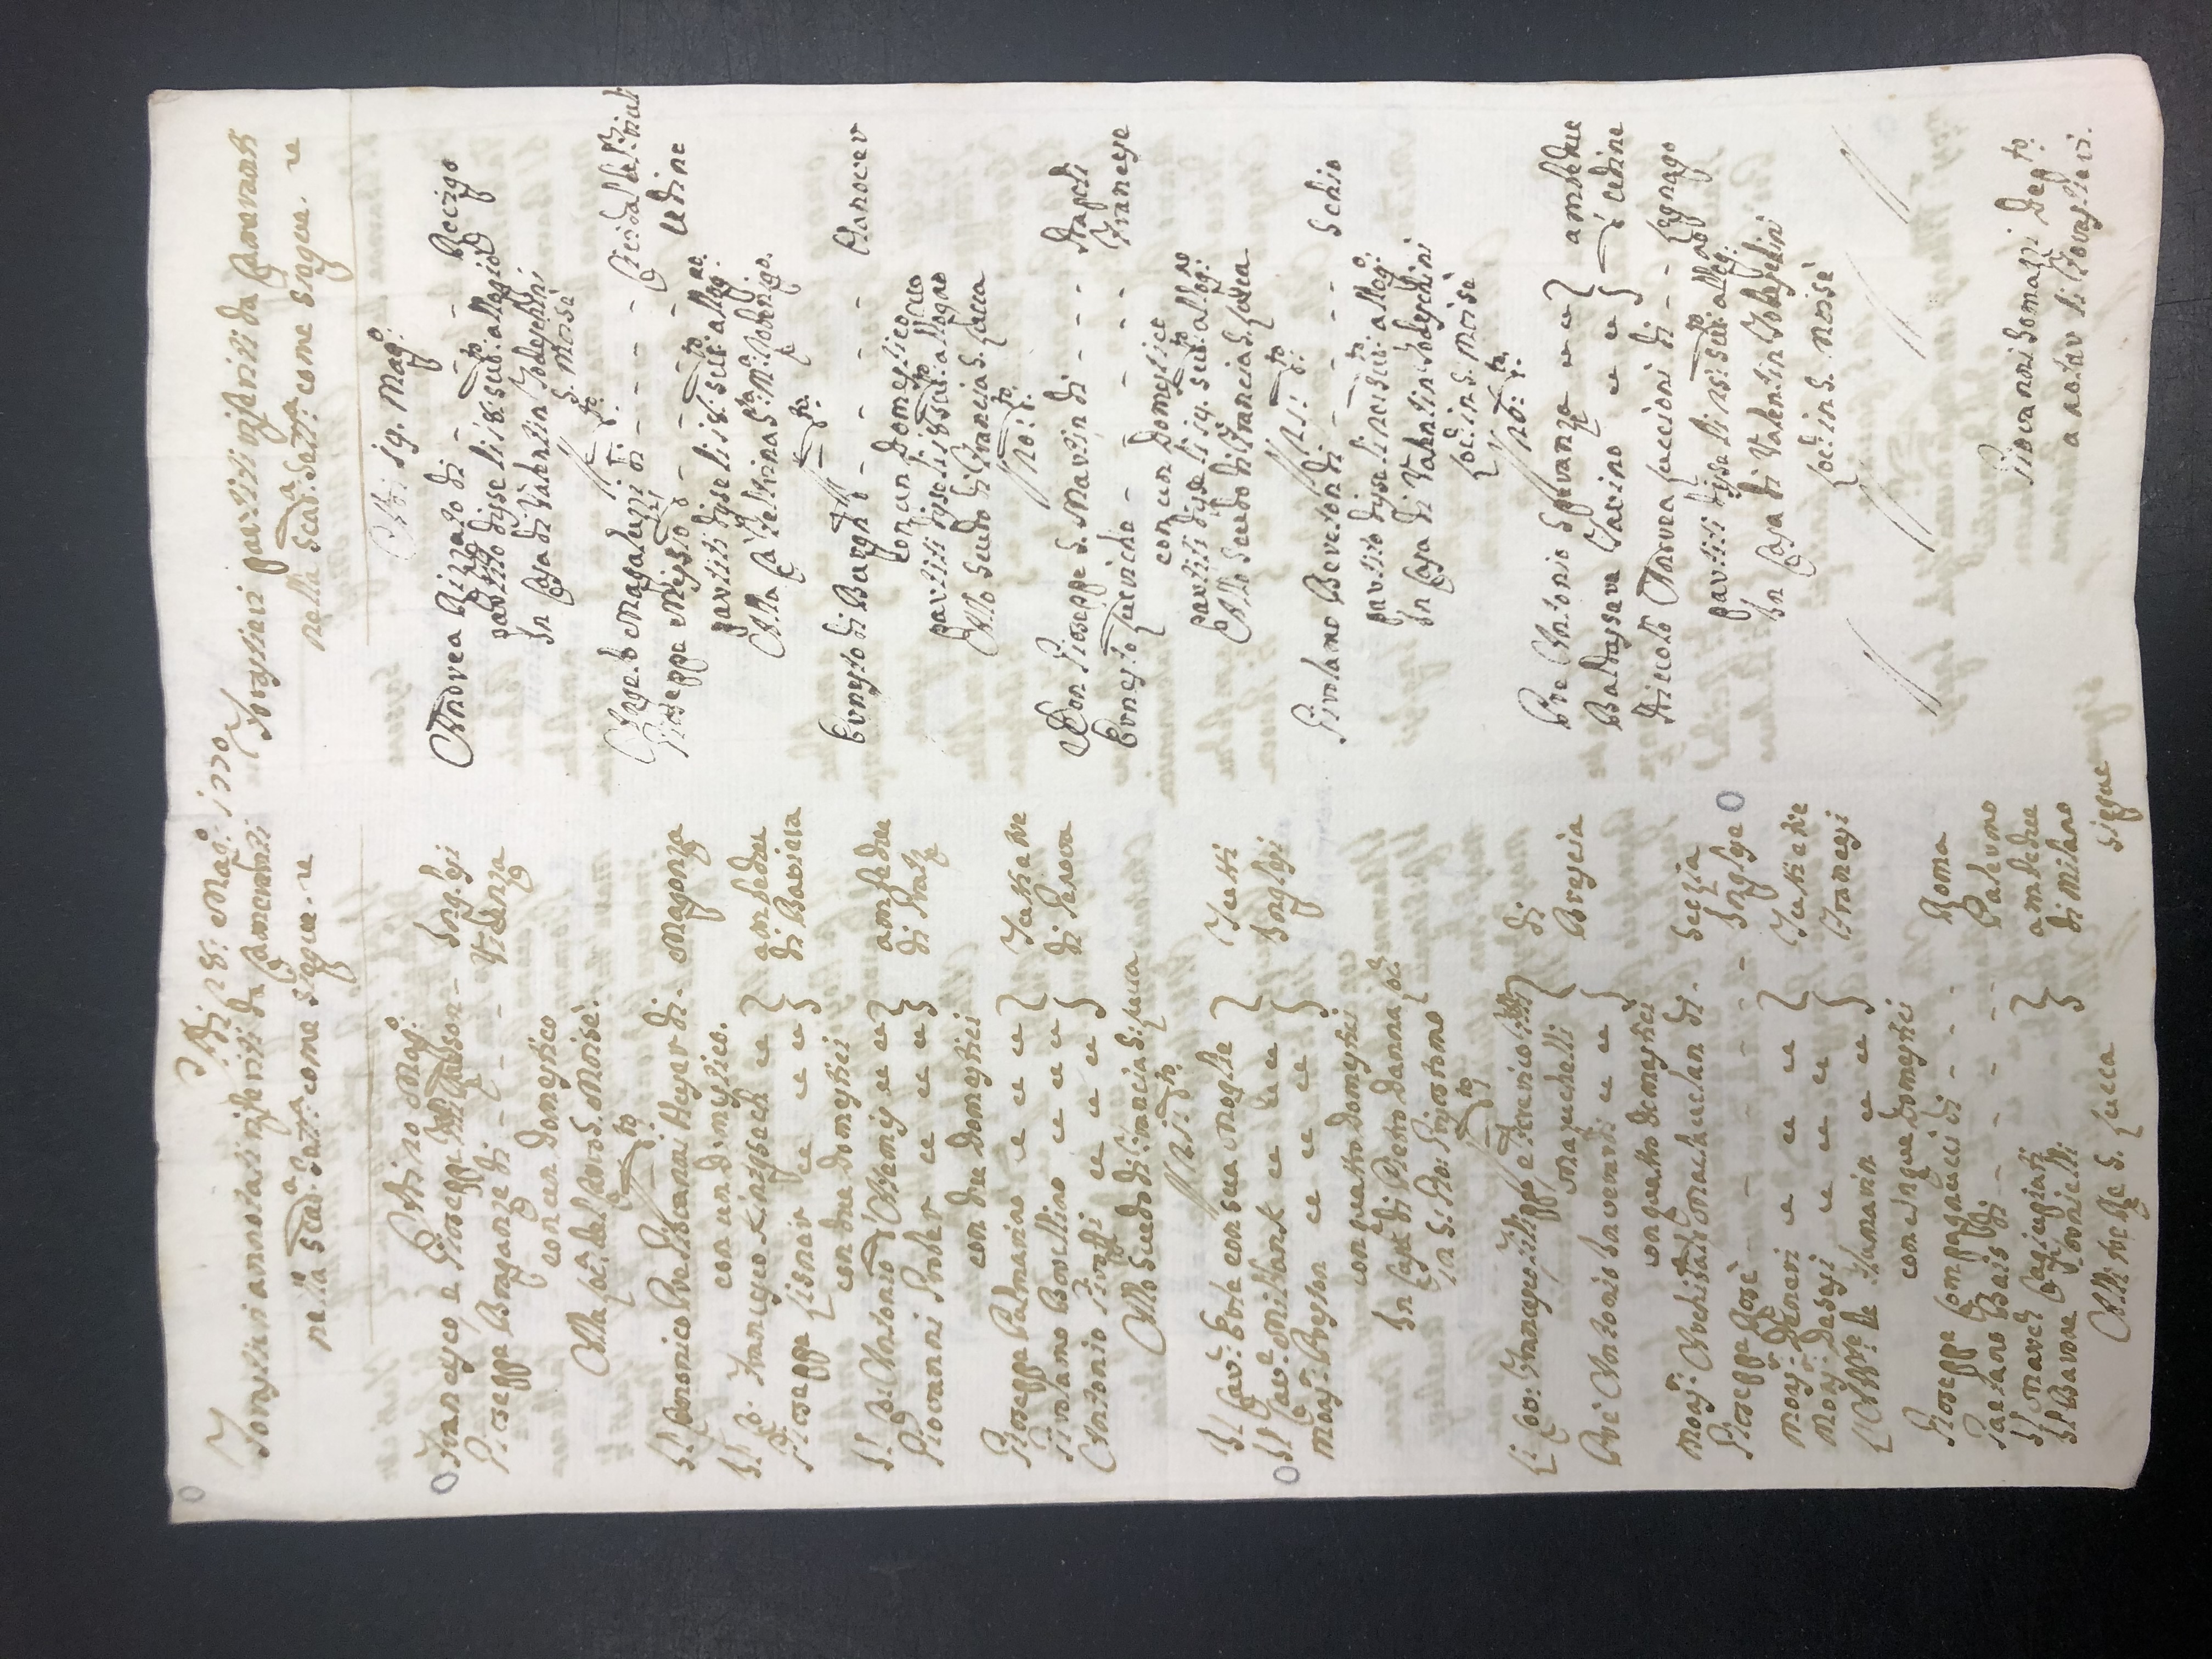 Adi 28: Mag.o 1770
Forastieri annotati riferiti da Cameranti
nella scad.a Sett.a come siegue.
Adi 20 Mag.o:
Francesco, e Gioseppe Inglesi
Gioseppe Braganze di - - - Vicenza
con un Domestico
Alla Loc.a del Cavo S. Moisè.
// - d.to
Il Canonico Pre Giovanni Heyer di - Magonza
con un Domestico.
Il Co: Francesco Kinigsech } ambedue
Gioseppe Lisner } di Baviera
con due Domestici
Il Co: Antonio d'Attemis } ambedue
Giovanni Prober } di Gratz
con due Domestici
Gioseppe Palmarino } Tutti e tre
Girolamo Bovellino } di Genova
Antonio }
Allo Scudo di Francia S: Lucca
// 21: d.to
Il Cav.r Erle con sua Moglie } Tutti
Il Cav.r Milbank } Inglesi
Mons.r Preston }
con quatto Domestici
In Casa di Pietro Danna Loc.e
in S: Gio: Grisostomo
// - d.to
Li Co: Francesco, Filippo, e Federico F.lli } di
Mazuchelli } Brescia
Pre Antonio Inverardi }
con quatto Domestici
Mons.r Archibald Maclauclan di - Scozia
Gioseppe Rosè - - - - - - Inglese
Mons.r Deneri } Tutti e tre
Mons.r Desesi } Francesi
L'Abb.te de Namarin }
con cinque Domestici
Gioseppe Compagnucci di - - - Roma
Gaetano Bais di - - - - - Palermo
Il March. } ambedue
Il Barone Tornielli } di Milano
Alli tre Re S. Lucca
siegue
Forastieri partiti riferiti da Cameranti
nella scad.a Sett.a come siegue.
Adi 19. Mag.o:
Andrea Rizzato di - - - Rovigo
partito disse li 18: sud.to: allogiò
In Casa di Valentin Todeschini
S. Moisè
// - d.to
Angelo Magaluzzi di - - - - Cividal del Friuli
Gioseppe Missio d' - - - - - Udine
partiti disse li 18: sud.to: allog.no:
Alla Cà Feltrina S.ta M.a Zobenigo.
// - d.to
Ernesto di Burgh d' - - - - Hanover
con un Domestico
partiti disse li 18 sud.to: allogno
Allo Scudo di Francia S. Lucca
// 20: d.to
Don Gioseppe S. Martin di - - - Napoli
Ernesto - - - - - Francese
con un Domestico
partiti disse li 19. sud.to: allog.no
Allo Scudo di Francia S. Lucca
// 21: d.to
Girolamo Bereton di - - - - Schio
partito disse li 20: sud.to: allog.o:
In Casa di Valentin Todeschini
Loc.e in S. Moisè
// 26: d.to
Pre Antonio Speranza } ambedue
Baldassera Varino } d' Udine
Niccolò Andrea Luccioni di - - Legnago
partiti disse li 25: sud.to: alleg.no
In Casa di Valentin Todeschini
Loc.e in S. Moisè
// // // //
Giovanni Somazzi Dep.to:
a notar li Forastieri.